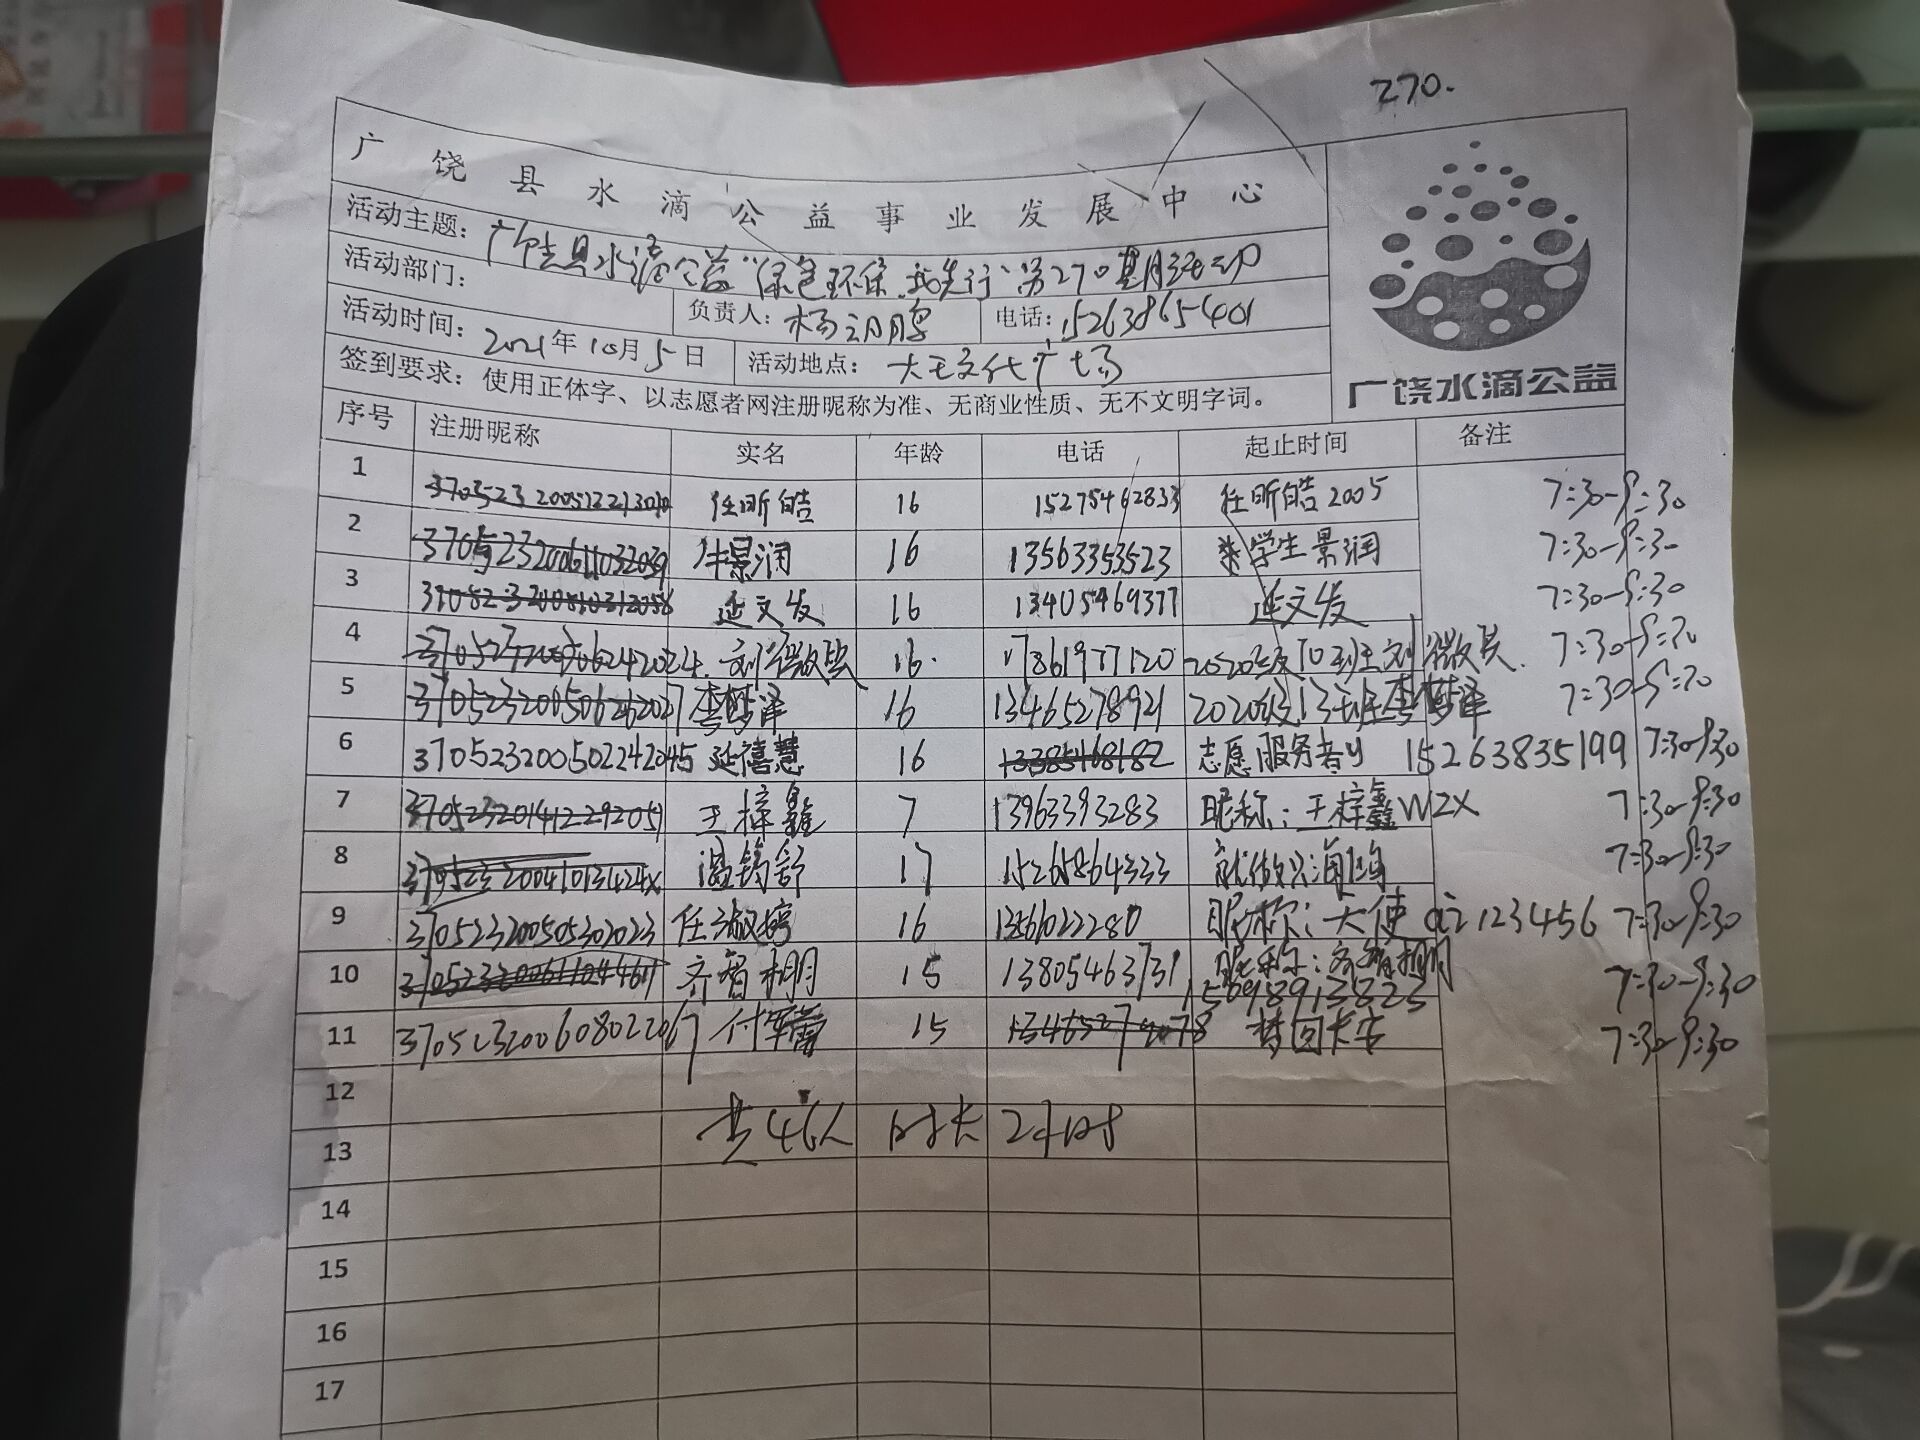 270.
广饶县水滴公益事业发展中心
活动主题：广饶县水滴公益“绿色环保，我先行”第270期活动
活动部门： 负责人：杨朝鹏 电话：15263865401
活动时间：2021年10月5日 活动地点：大王文化广场
签到要求：使用正体字、以志愿者网注册昵称为准、无商业性质、无不文明字词。
广饶水滴公益
序号 注册昵称 实名 年龄 电话 起止时间 备注
1 任昕皓 16 15275462833 任昕皓2005 7:30-9:30
2 景润 16 13563353523 学生景润 7:30-9:30
3 延文发 16 13405469377 延文发 7:30-9:30
4 刘 16. 17861977120 2020级10班刘 7:30-9:30
5 李梦泽 16 13465278921 2020级13班李梦泽 7:30-9:30
6 370523200502242045 延禧慧 16 志愿服务者y 15263835199 7:30-9:30
7 王梓鑫 7 13963393283 昵称：王梓鑫WZX 7:30-9:30
8 温钧舒 17 15265864333 就做只海鸥 7:30-9:30
9 370523200505302023 任淑婷 16 昵称：天使 123456 7:30-9:30
10 齐智栩 15 13805463731 昵称：齐智栩 7:30-9:30
15698913823
11 370523200608022067 付军蕾 15 梦回长安 7:30-9:30
12
共46人 时长2小时
13
14
15
16
17